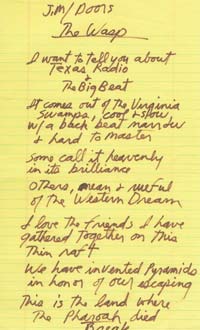 Jim/Doors
The Wasp
I want to tell you about
Texas Radio
&
The Big Beat
It comes out of the Virginia
Swamps, cool & slow
w/a back beat narrow
& hard to master
some call it heavenly
in its brilliance
Others, mean & rueful
of the Western Dream
I love the friends I have
gathered together on this
thin raft
We have invented Pyramids
in honor of our escaping
This is the land where
The Pharoah died
Break